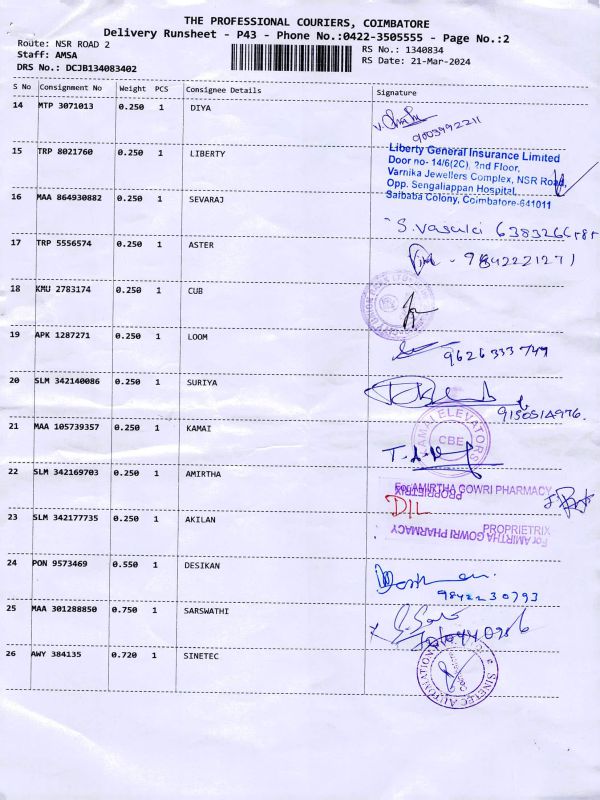 THE PROFESSIONAL COURIERS, COIMBATORE
Delivery Runsheet - P43 - Phone No.:0422-3505555 - Page No.:2
Route: NSR ROAD 2
Staff: AMSA
DRS No.: DCJB134083402
RS No.: 1340834
RS Date: 21-Mar-2024
S No Consignment No Weight PCS Consignee Details Signature
14 MTP 3071013 0.250 1 DIYA
9003992211
15 TRP 8021760 0.250 1 LIBERTY
Liberty General Insurance Limited
Door no- 14/6(2C), 2nd Floor,
Varnika Jewellers Complex, NSR Road,
Opp. Sengaliappan Hospital,
Saibaba Colony, Coimbatore-641011
16 MAA 864930882 0.250 1 SEVARAJ
S. Vasuki
17 TRP 5556574 0.250 1 ASTER
9842221271
18 KMU 2783174 0.250 1 CUB
19 APK 1287271 0.250 1 LOOM
9626333749
20 SLM 342140086 0.250 1 SURIYA
9150514976.
21 MAA 105739357 0.250 1 KAMAI
KAMAI ELEVATORS
CBE
22 SLM 342169703 0.250 1 AMIRTHA
For AMIRTHA GOWRI PHARMACY
PROPRIETRIX
DIL
23 SLM 342177735 0.250 1 AKILAN
PROPRIETRIX
For AMIRTHA GOWRI PHARMACY
24 PON 9573469 0.550 1 DESIKAN
9842230793
25 MAA 301288850 0.750 1 SARSWATHI
26 AWY 384135 0.720 1 SINETEC
SINETEC AUTOMATION